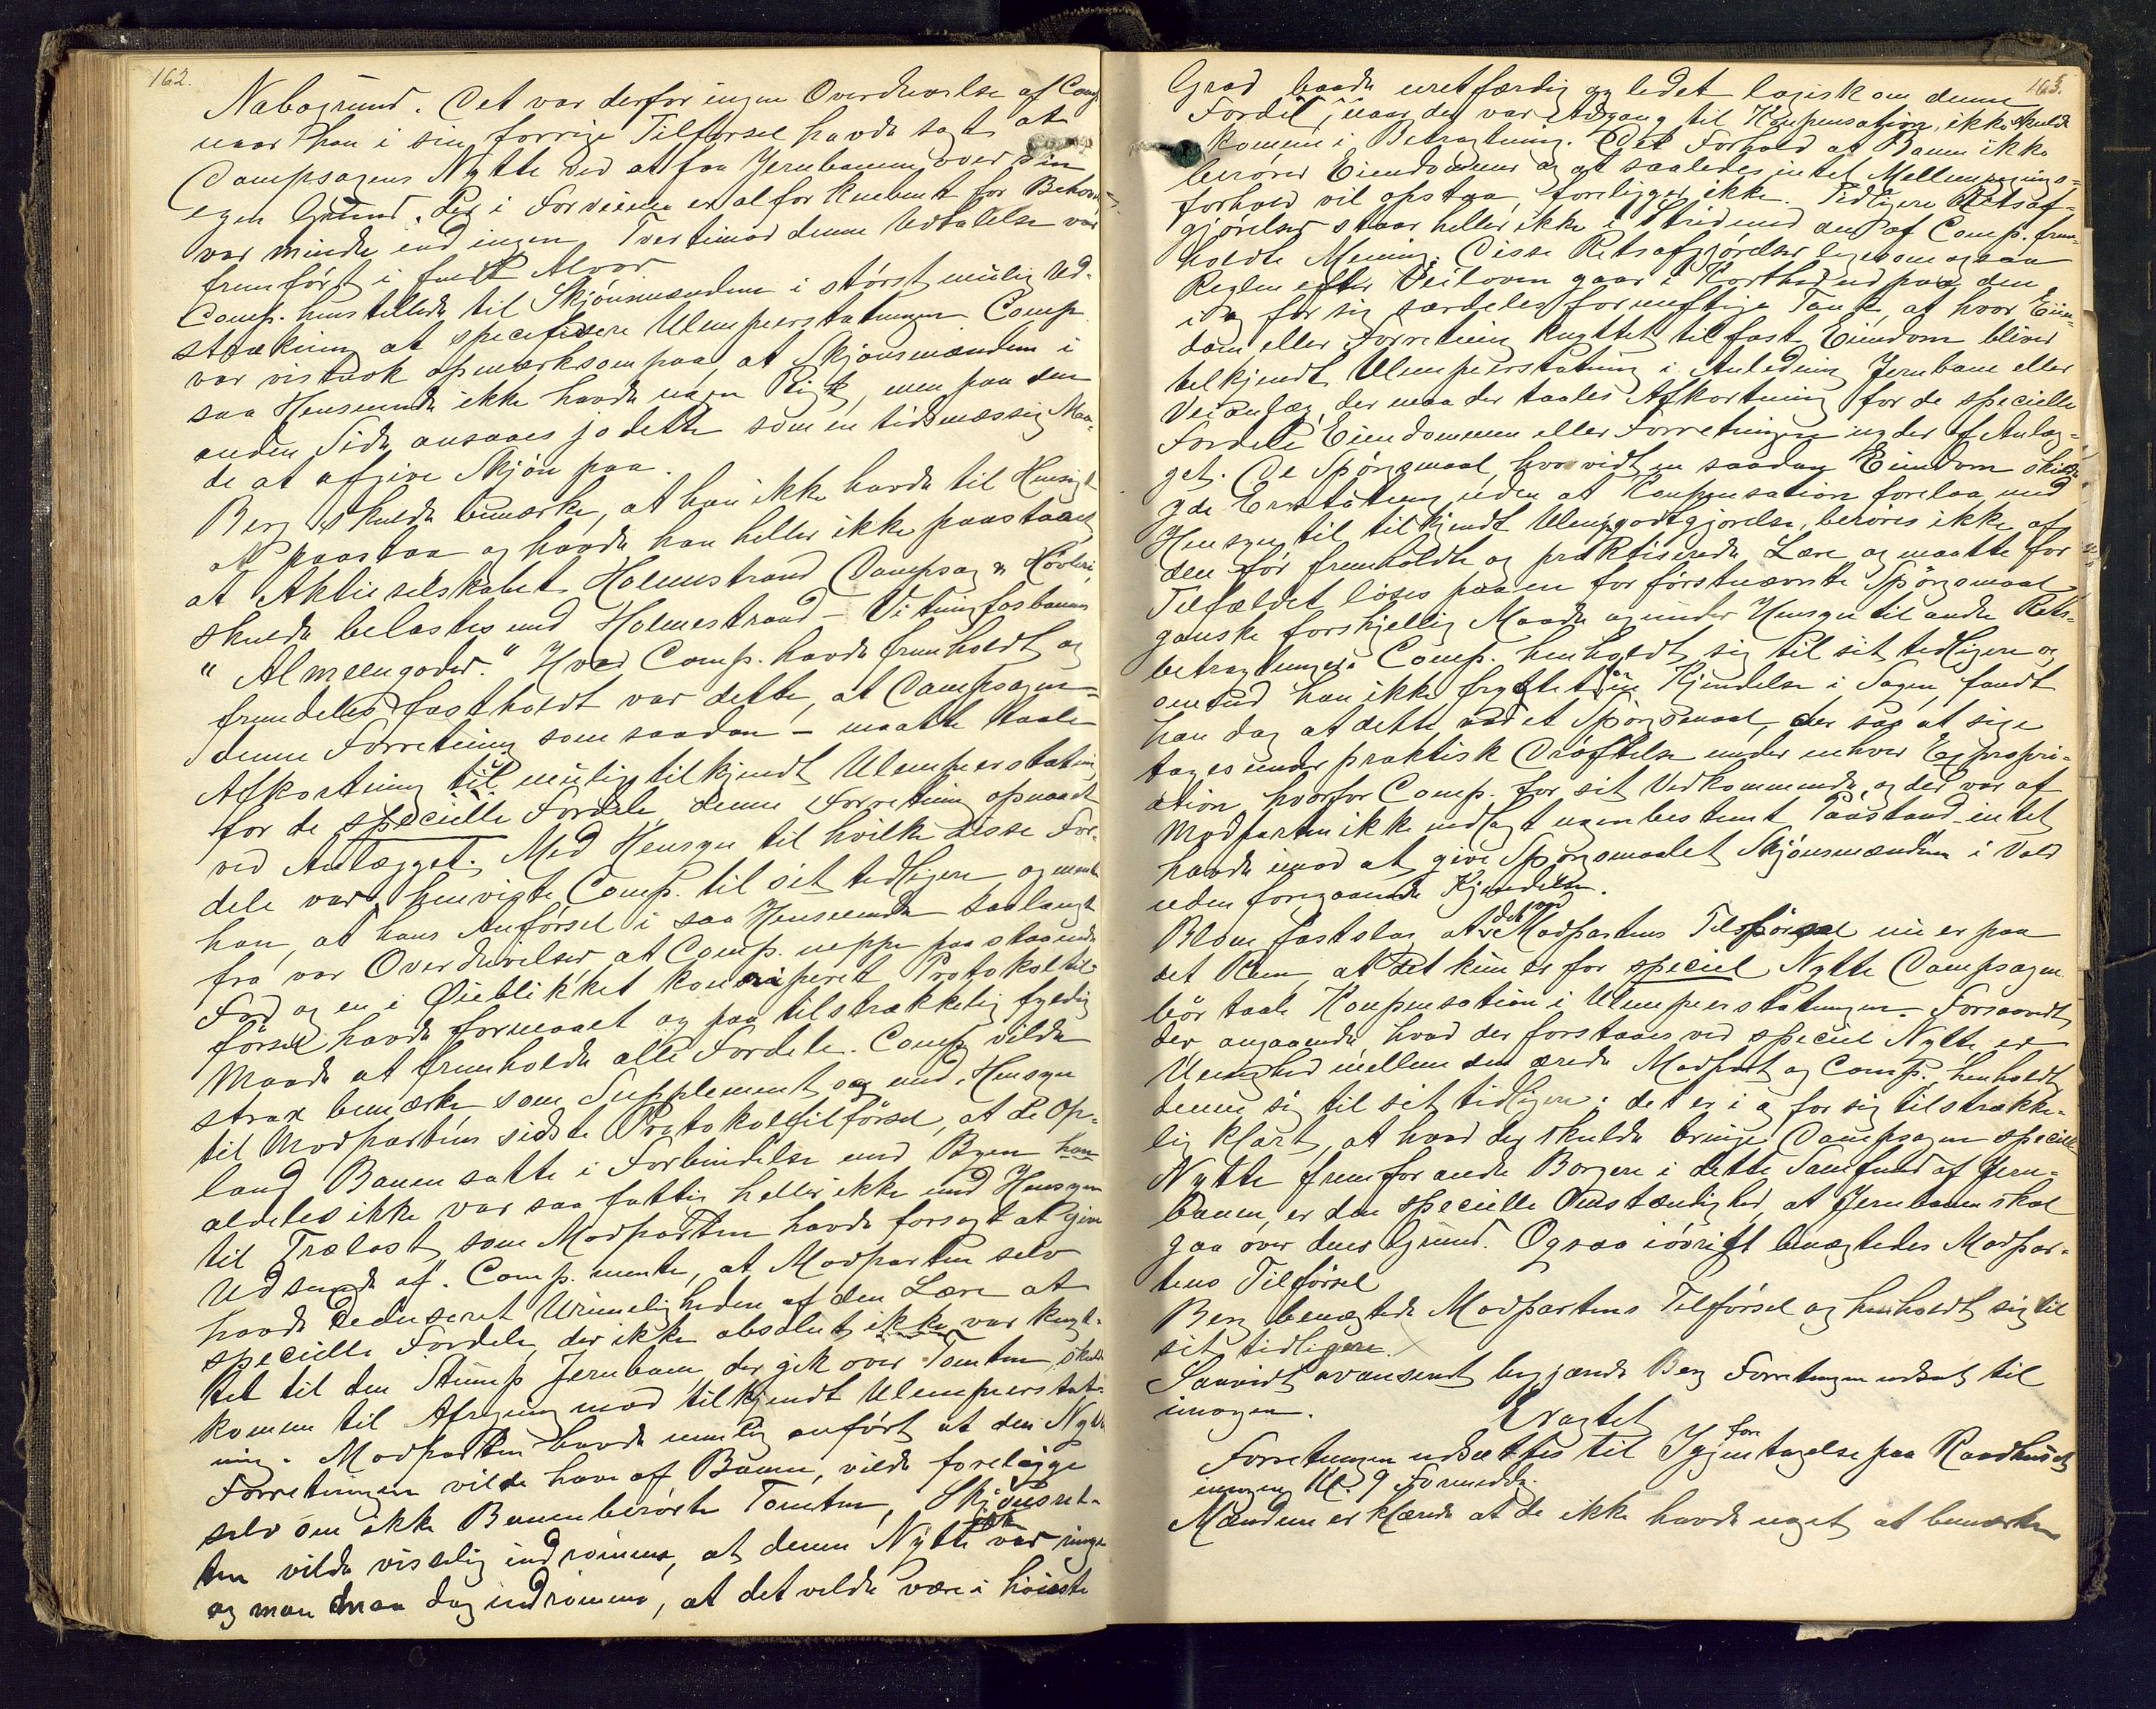 162.
Nabogrund. Det var derfor ingen Overdrivelse af Comp.
naar han i sin forrige Tilførsel havde sagt at
Dampsagens Nytte ved at faa Jernbanen over sin
egen Grund, der i Forveien er alfor knebent for Behovet,
var mindre end ingen. Tvertimod denne Udtalelse var
fremført i fuldt Alvor.
Comp. henstillede til Skjønsmændene i størst mulig Ud-
strækning at specifisere Ulempeerstatningen. Comp.
var vistnok opmærksom paa, at Skjønsmændene i
saa Henseende ikke havde nogen Pligt, men paa den
anden Side ansaaes jo dette som en tidsmæssig Maa-
de at afgive Skjøn paa.
Berg skulde bemærke, at han ikke havde til Hensigt
at paastaa og havde han heller ikke paastaaet
at Aktieselskabet Holmestrand Dampsag & Høvleri
skulde belastes med Holmestrand - Vitingfosbanens
"Almeengoder." Hvad Comp. havde fremholdt og
fremdeles fastholdt var dette, at Dampsagen -
denne Forretning som saadan - maatte taale
Afkortning til mulig tilkjendt Ulempeerstatning
for de specielle Fordele denne Forretning opnaaede
ved Anlægget. Med Hensyn til hvilke disse For-
dele var, henviste Comp. til sit tidligere og mente
han, at hans Anførsel i saa Henseende saalangt
fra var Overdrivelser at Comp. neppe paa staaende
Fod og en i Øieblikket konsiperet Protokoltil-
førsel havde formaaet og paa tilstrækkelig fyldig
Maade at fremholde alle Fordele. Comp. vilde
strax bemærke som Supplement og med Hensyn
til Modpartens sidste Protokoltilførsel, at de Op-
land Banen satte i Forbindelse med Byen han
aldeles ikke var saa fattig heller ikke med Hensyn
til Trælast, som Modparten havde forsøgt at give
Udseende af. Comp. mente, at Modparten selv
havde deduseret Urimeligheden af den Lære at
specielle Fordele, der ikke absolut ikke var knyt-
tet til den Stump Jernbane der gik over Tomten, skulde
komme til Afregning mod tilkjendt Ulempeerstat-
ning. Modparten havde nemlig anført at den Nytte
Forretningen vilde have af Banen, vilde foreligge
selv om ikke Banen berørte Tomten, Skjønsret-
ten vilde visselig indrømme, at denne Nytte ikke var ringe
og man maa dog indrømme, at det vilde være i høieste
163.
Grad baade uretfærdig og ledet logisk om denne
Fordel, naar der var Adgang til Kompensation, ikke skulde
komme i Betragtning. Det Forhold at Banen ikke
berører Eiendommen og at saaledes intet Mellemregnings-
forhold vil opstaa, foreligger ikke. Tidligere Retsaf-
gjørelser staar heller ikke i Strid med den af Comp. frem-
holdte Mening. Disse Retsafgjørelser ligesom ogsaa
Reglen efter Veiloven gaar i Korthed ud paa den
i og for sig særdeles fornuftige Tanke, at hvor Eien-
dom eller Forretning knyttet til fast Eiendom bliver
tilkjendt Ulempeerstatning i Anledning Jernbane eller
Veianlæg, der maa der taales Afkortning for de specielle
Fordele Eiendommen eller Forretningen nyder af Anlæg-
get. De Spørgsmaal, hvorvidt en saadan Eiendom skulde
yde Erstatning uden at Kompensation forelaa med
Hensyn til tilkjendt Ulempegodtgjørelse, berøres ikke af
den før fremholdte og praktiserede Lære og maatte for
Tilfældet løses paa en for førstnævnte Spørgsmaal
ganske forskjellig Maade og under Hensyn til andre Rets-
betragtninger. Comp. henholdt sig til sit tidligere og
omend han ikke frygtet en Kjendelse i Sagen, fandt
han dog at dette var et Spørgsmaal, der saa at sige
toges under praktisk Drøftelse under enhver Expropri-
ation, hvorfor Comp. for sit Vedkommende, og der var af
Modparten ikke nedlagt nogen bestemt Paastand - intet
havde imod at give Spørgsmaalet Skjønsmændene i Vold
uden foregaaende Kjendelse.
Blom fastslog at det ved Modpartens Tilførsel nu er paa
det Rene, at det kun er for speciel Nytte Dampsagen
bør taale Kompensation i Ulempeerstatningen. Forsaavidt
der angaaende hvad der forstaaes ved speciel Nytte er
Uenighed mellem den ærede Modpart og Comp., henholdt
denne sig til sit tidligere; det er i og for sig tilstrække-
lig klart, at hvad der skulde bringe Dampsagen speciel
Nytte fremfor andre Borgere i dette Samfund af Jern-
banen, er den specielle Omstændighed, at Jernbanen skal
gaa over dens Grund. Ogsaa iøvrigt benægtedes Modpar-
tens Tilførsel
Berg benægtede Modpartens Tilførsel og henholdt sig til
sit tidligere.
Saavidt avanseret begjærede Berg Forretningen udsat til
imorgen.
Eragtet
Forretningen udsættes til Igjenforetagelse paa Raadhuset
imorgen Kl. 9 Formiddag.
Mændene erklærede at de ikke havde noget at bemærke